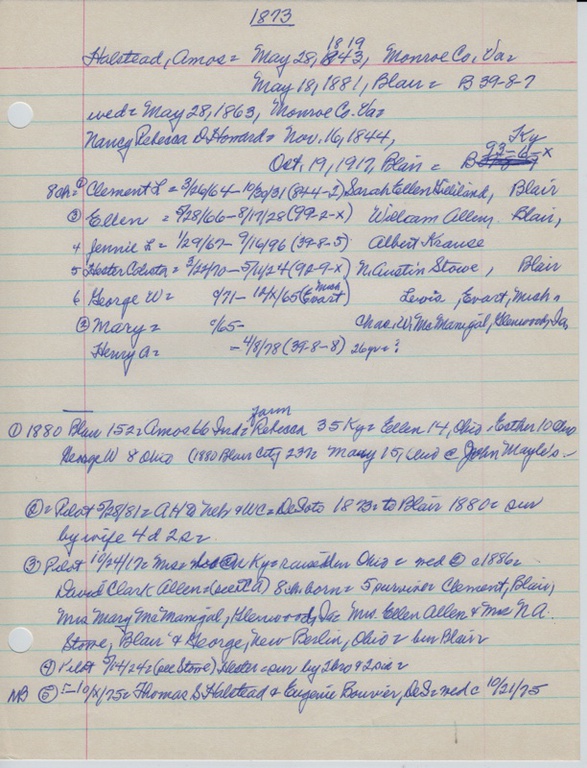 1873
1819
Halstead, Amos = May 28, 1843, Monroe Co. Va =
May 18, 1881, Blair = B 39-8-7
wed = May 28, 1863, Monroe Co. Va =
Nancy Rebecca D. Howard = Nov. 16, 1844, Ky
Oct. 19, 1917, Blair = B 93-6-x
8 ch = ① Clement L = 3/26/64 - 10/30/31 (844-2) Sarah Ellen Gilliland, Blair
③ Ellen = 5/28/66 - 8/17/28 (99-2-x) William Allen, Blair,
4 Jennie L = 1/29/67 - 9/16/96 (39-8-5) Albert Krause
5 Hester = 3/22/70 - 5/11/24 (92-9-x) N. Austin Stowe, Blair
6 George W = 0/71 - 12/x/65 (Evart Mich) Lewis, Evart, Mich =
② Mary = 0/65 - Chas. W. McManigal, Glenwood, Ia
Henry A = - 4/8/78 (39-8-8) 26 yr = ?
① 1880 Blair 152 = Amos 66 Ind = farm Rebecca 35 Ky = Ellen 14, Ohio = Esther 10 Ohio
George W 8 Ohio (1880 Blair City 237 = Mary 15, Ohio @ John Mayle's -
② = Pilot 5/28/81 = A H to Neb & WC = DeSoto 1873 = to Blair 1880 = sur
by wife 4 d 2 s =
③ Pilot 10/24/17 = Mrs = Ky = raised in Ohio = wed ② c 1886 =
David Clark Allen = 8 ch born = 5 survive Clement, Blair,
Mrs Mary McManigal, Glenwood, Ia Mrs Ellen Allen & Mrs N A.
Stowe, Blair & George, New Berlin, Ohio = bur Blair
④ Pilot 5/14/24 = (see Stowe) Hester = sur by 2 bro & 2 sis =
NB ⑤ = 10/x/75 = Thomas S Halstead & Eugenie Bouvier, DeS = wed c 10/21/75